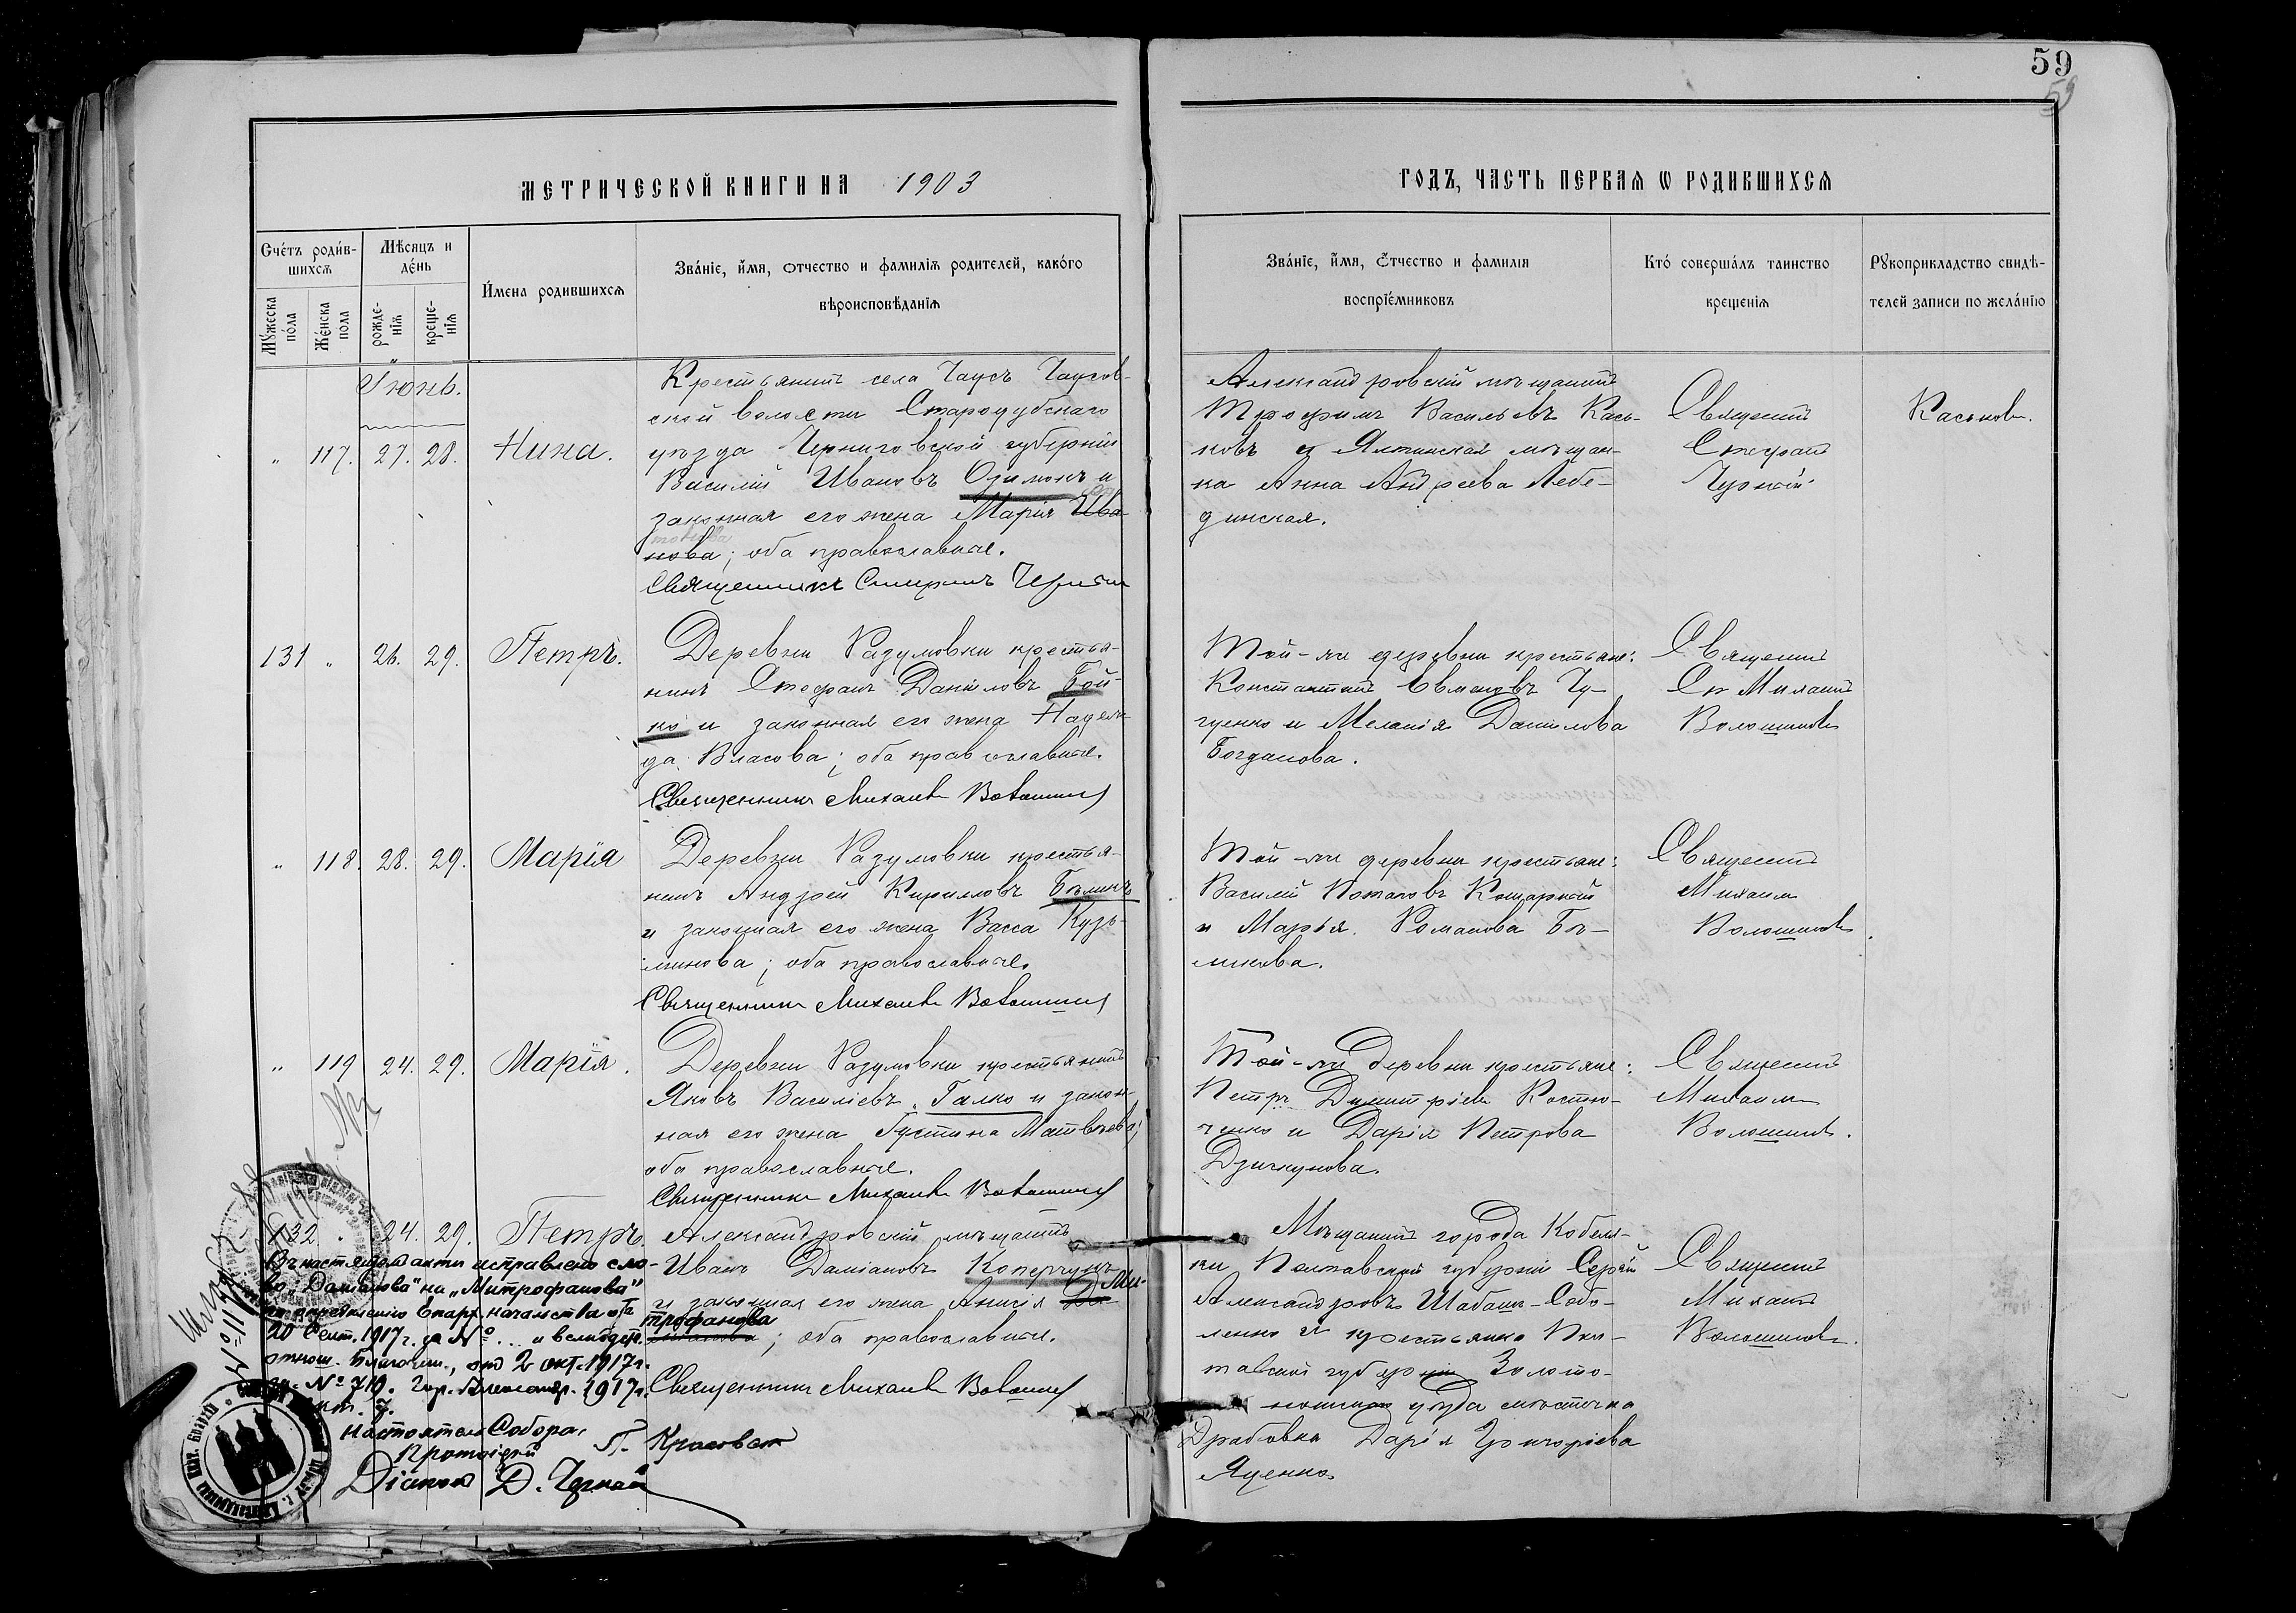 59
59
МЕТРИЧЕСКОЙ КНИГИ НА 1903
ГОДЪ, ЧАСТЬ ПЕРВАЯ Ѡ РОДИВШИХСЯ
Счéтъ родúв-
шихся
Мѣсяцъ и
дéнь
Мꙋжеска
пóла
Жéнска
пола
рожде-
нія
креще-
нія
И́мена родившихся
Звáніе, и́мя, ѻтчество и фамилія родителей, какóго
вѣроисповѣданія
Звáніе, и́мя, Ѻ́тчество и фамилія
воспріéмниковъ
Ктó совершáлъ таинство
крещенія
Рꙋкоприкладство свидѣ-
телей записи по желáнію
Іюнь.
" 117. 27. 28. Нина.
Крестьянинъ села Чаусъ Чаусов-
ской волости Стародубскаго
уѣзда Черниговской губерніи
Василій Ивановъ Одимокъ и
законная его жена Марія Ива-
нова; оба православные.
Священникъ
Александровскій мѣщанинъ
Трофимъ Васильевъ Кась-
ковъ и Ялтинская мѣщан-
ка Анна Андреева Лебе-
динская.
Священникъ
Стефанъ
Каськовъ.
131 " 26. 29. Петръ.
Деревни Разумовки крестья-
нинъ Стефанъ Даніиловъ Бой-
ко и законная его жена Надеж-
да Власова; оба православные.
Священникъ Михаилъ Волошинъ
Той-же деревни крестьяне:
Константинъ Евменовъ Гу-
ценко и Меланія Данилова
Богданова.
Священникъ
Михаилъ
Волошиновъ
" 118. 28. 29. Марія
Деревни Разумовки крестья-
нинъ Андрей Кириловъ Бѣликъ
и законная его жена Васса Кузь-
минова; оба православные.
Священникъ Михаилъ Волошинъ
Той-же деревни крестьяне:
Василій Потаповъ Кошарный
и Марья Романова Бѣ-
ликова.
Священникъ
Михаилъ
Волошиновъ.
" 119 24. 29. Марія.
Деревни Разумовки крестьянинъ
Яковъ Василіевъ Галко и закон-
ная его жена Густина Матвѣева;
оба православные.
Священникъ Михаилъ Волошинъ
Той-же деревни крестьяне:
Петръ Димитріевъ Костю-
ченко и Дарія Петрова
Дзигкунова.
Священникъ
Михаилъ
Волошинъ.
132 " 24. 29. Петръ.
Александровскій мѣщанинъ
Иванъ Даміановъ Коперчукъ
и законная его жена Анисія Да- Ми-
трофанова
міанова; оба православные.
Священникъ Михаилъ Волошинъ
Мѣщанинъ города Кобеля-
ки Полтавской губерніи Сергѣй
Александровъ Шабашъ-Собо-
ленко и крестьянка Пол-
тавской губерніи Золото-
ношскаго уѣзда мѣстечка
Драбовка Дарія Григоріева
Яценко.
Священникъ
Михаилъ
Волошиновъ.
Въ настоящемъ актѣ исправлено сло-
во „Даміанова" на „Митрофанова"
по опредѣленію Епарх. начальства отъ
20 Сент. 1917 г. за № ... и вслѣдст.
отнош. Благочин., отъ 2 окт. 1917 г.
за № 719. Гор. Александр. 1917 г.
окт. 7.
Настоятель Собора,
Протоіерей П.
Діаконъ Д. Чернай